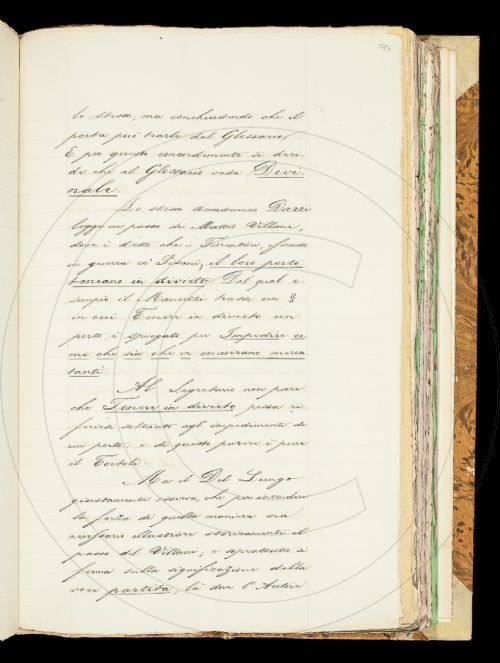 lo stesso, ma conchiudendo che il
poeta può trarlo dal Glossario.
E per questo concordemente si deci-
de che al Glossario vada Devi-
nale.
Lo stesso Accademico Dazzi
legge un passo di Matteo Villani,
dove è detto che i Fiorentini, essendo
in guerra co' Pisani, il loro porto
teneano in divieto. Dal qual e-
sempio il Manuzzi trasse un §
in cui Tenere in divieto un
porto è spiegato per Impedire co-
me che sia che vi concorrano merca-
tanti.
Al Segretario non pare
che Tenere in divieto possa ri-
ferirsi soltanto agl' impedimenti di
un porto: e di questo parere è pure
il Tortoli.
Ma il Del Lungo
giustamente osserva, che per intendere
la forza di quella maniera sia
necessario illustrare storicamente il
passo del Villani; e soprattutto si
ferma sulla significazione della
voce partita, là dove l' Autore